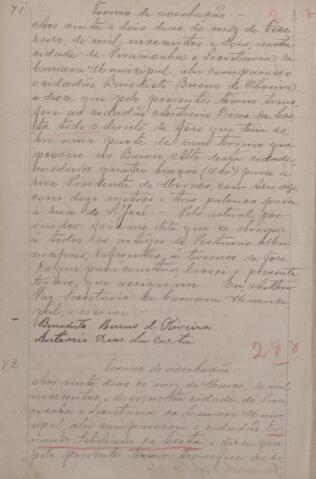 71 Termo de averbação. — 287
Aos vinte e dois dias do mez de Feve-
reiro, de mil novecentos e dois, nesta
cidade de Piracicaba e Secretaria da
Camara Municipal, ahi compareceo
o cidadão Benedicto Bueno de Oliveira
e disse que pelo presente termo trans-
fere ao cidadão Antonio Dias da Cos-
ta todo o direito de foro que tem so-
bre uma parte de um terreno que
possue no Bairro Alto desta cidade,
medindo quatro braças para a
rua Prudente de Moraes, com digo,
com doze metros e tres palmos para
a rua de S. José. — Pelo actual pos-
suidor foi me dito que se obriga
a todos os artigos de Posturas Mu-
nicipaes, referentes a terrenos de foro
Do que para constar, lavrei o presente
termo, que assignaram. Eu, Arthur
Vaz, Secretario da Camara Munici-
pal, o escrevi. —
Benedicto Bueno d. Oliveira
Antonio Dias da Costa
288
72 Termo de averbação
Aos vinte dias do mez de Março, de mil
novecentos e dois, nesta cidade de Pira-
cicaba e Secretaria da Camara Muni-
cipal, ahi compareceu o cidadão Fer-
nando da Costa e disse que
pelo presente termo transfere ao ci-